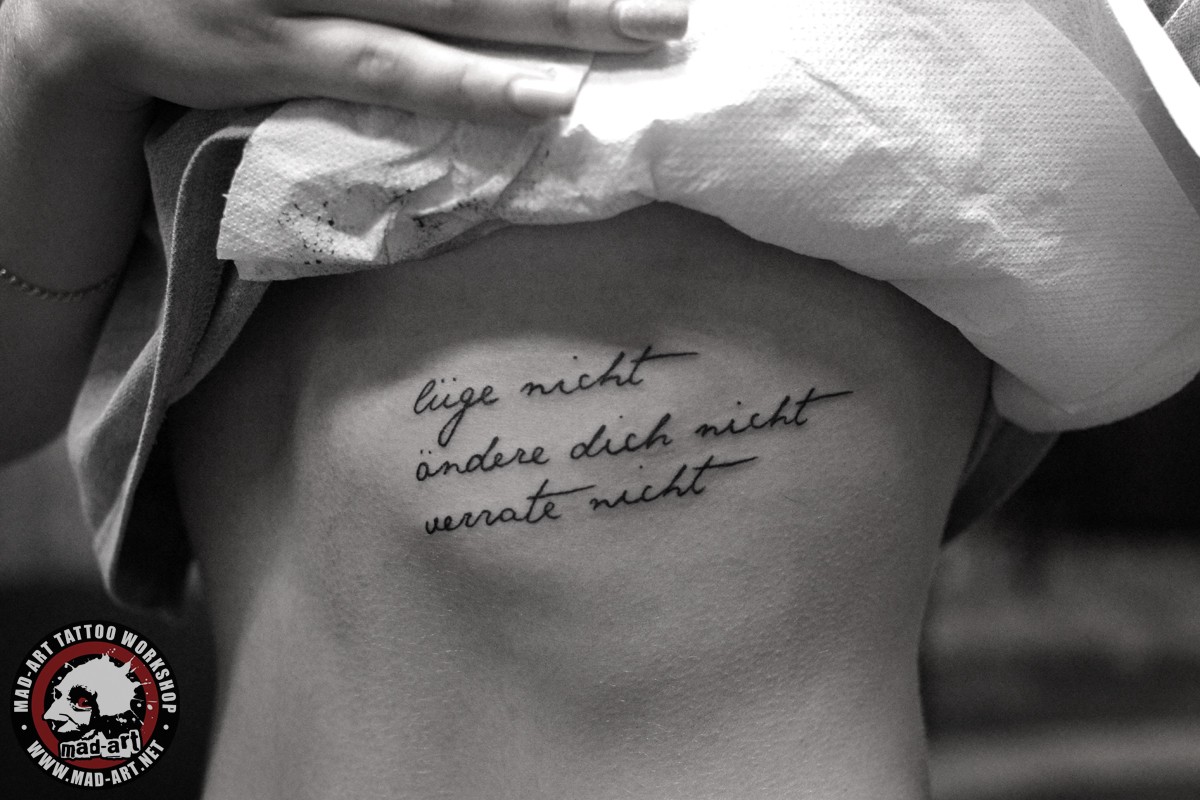 lüge nicht
ändere dich nicht
verrate nicht
MAD-ART TATTOO WORKSHOP
mad-art
WWW.MAD-ART.NET